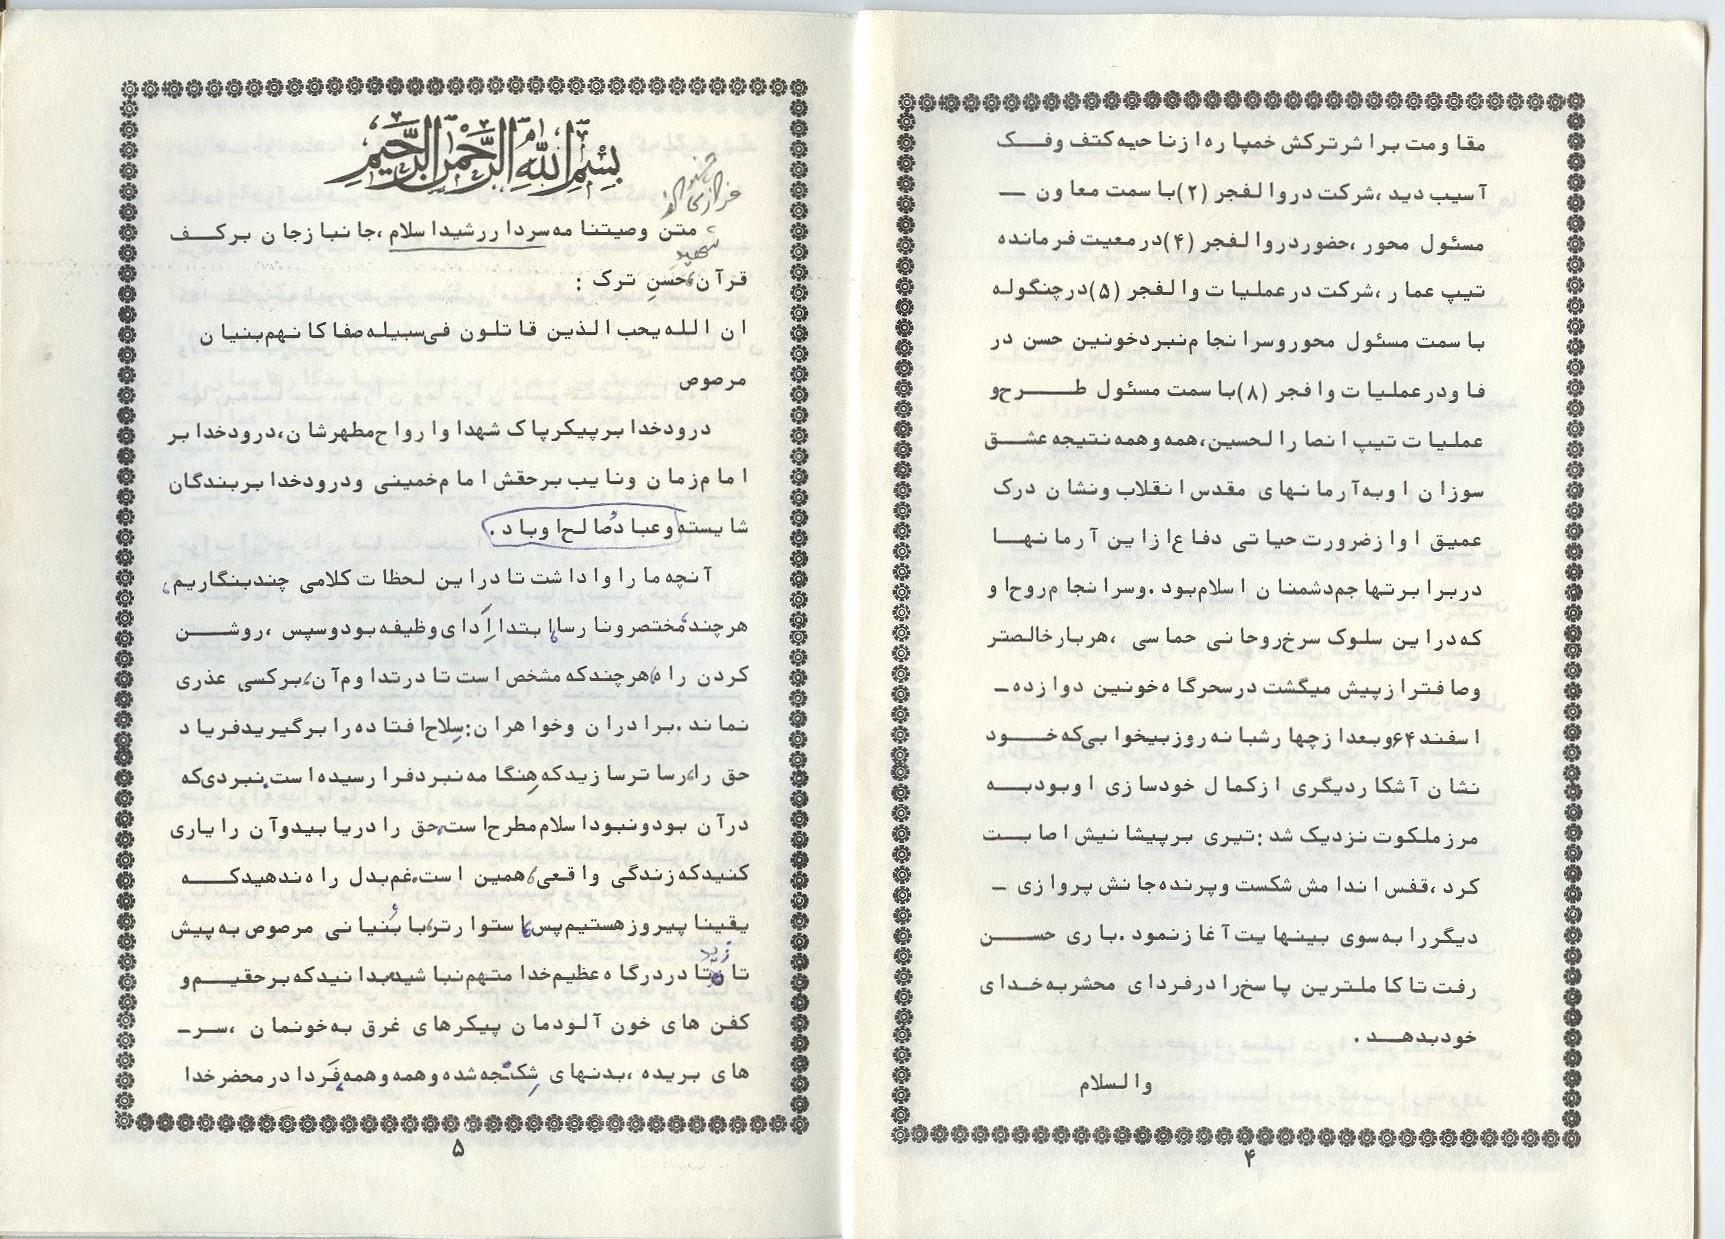 مقاومت براثرترکش خمپاره ازناحیه کتف وفک
آسیب دید ،شرکت دروالفجر (۲)باسمت معاون —
مسئول محور ،حضوردروالفجر (۴)درمعیت فرمانده
تیپ عمار ،شرکت درعملیات والفجر (۵)درچنگوله
باسمت مسئول محوروسرانجام نبردخونین حسن در
فاودرعملیات وافجر (۸)باسمت مسئول طرح و
عملیات تیپ انصارالحسین،همه وهمه نتیجه عشق
سوزان اوبه آرمانهای مقدس انقلاب ونشان درک
عمیق اوازضرورت حیاتی دفاع ازاین آرمانها
دربرابرتهاجم دشمنان اسلام بود .وسرانجام روح او
که دراین سلوک سرخ روحانی حماسی ،هربارخالصتر
وصافترازپیش میگشت درسحرگاه خونین دوازده —
اسفند ۶۴وبعدازچهارشبانه روزبیخوابی که خود
نشان آشکاردیگری ازکمال خودسازی اوبودبه
مرزملکوت نزدیک شد :تیری برپیشانیش اصابت
کرد ،قفس اندامش شکست وپرنده جانش پروازی —
دیگررا به سوی بینهایت آغازنمود .باری حسن
رفت تاکاملترین پاسخ رادرفردای محشربه خدای
خودبدهد .
والسلام
۴
بسم الله الرحمن الرحیم
متن وصیتنامه سرداررشیداسلام ،جانبازجان برکف
شهید
قرآن،حسنِ ترک :
ان الله یحب الذین قاتلون فی سبیله صفاکانهم بنیان
مرصوص
درودخدابرپیکرپاک شهداوارواح مطهرشان،درودخدابر
امام زمان ونایب برحقش امام خمینی ودرودخدابربندگان
شایسته وعبادُصالح اوباد .
آنچه ماراواداشت تادراین لحظات کلامی چندبنگاریم،
هرچندمختصرونارسا،ابتدااَدای وظیفه بودوسپس ،روشن
کردن راه،هرچندکه مشخص است تادرتداوم آن،برکسی عذری
نماند .برادران وخواهران:سِلاح افتاده رابرگیریدفریاد
حق را،رساترسازیدکه هِنگامه نبردفرارسیده است.نبردی که
درآن بودونبوداسلام مطرح است،حق رادریابیدوآن رایاری
کنیدکه زندگی واقعی،همین است.غم بدل راه ندهیدکه
یقیناپیروزهستیم پس،استوارتر،بابُنیانی مرصوص به پیش
زید
تا تادردرگاه عظیم خدامتهم نباشید.بدانیدکه برحقیم و
کفن های خون آلودمان پیکرهای غرق به خونمان ،سر—
های بریده ،بدنهای شِکنجه شده وهمه وهمه،فَردا درمحضرخدا
۵